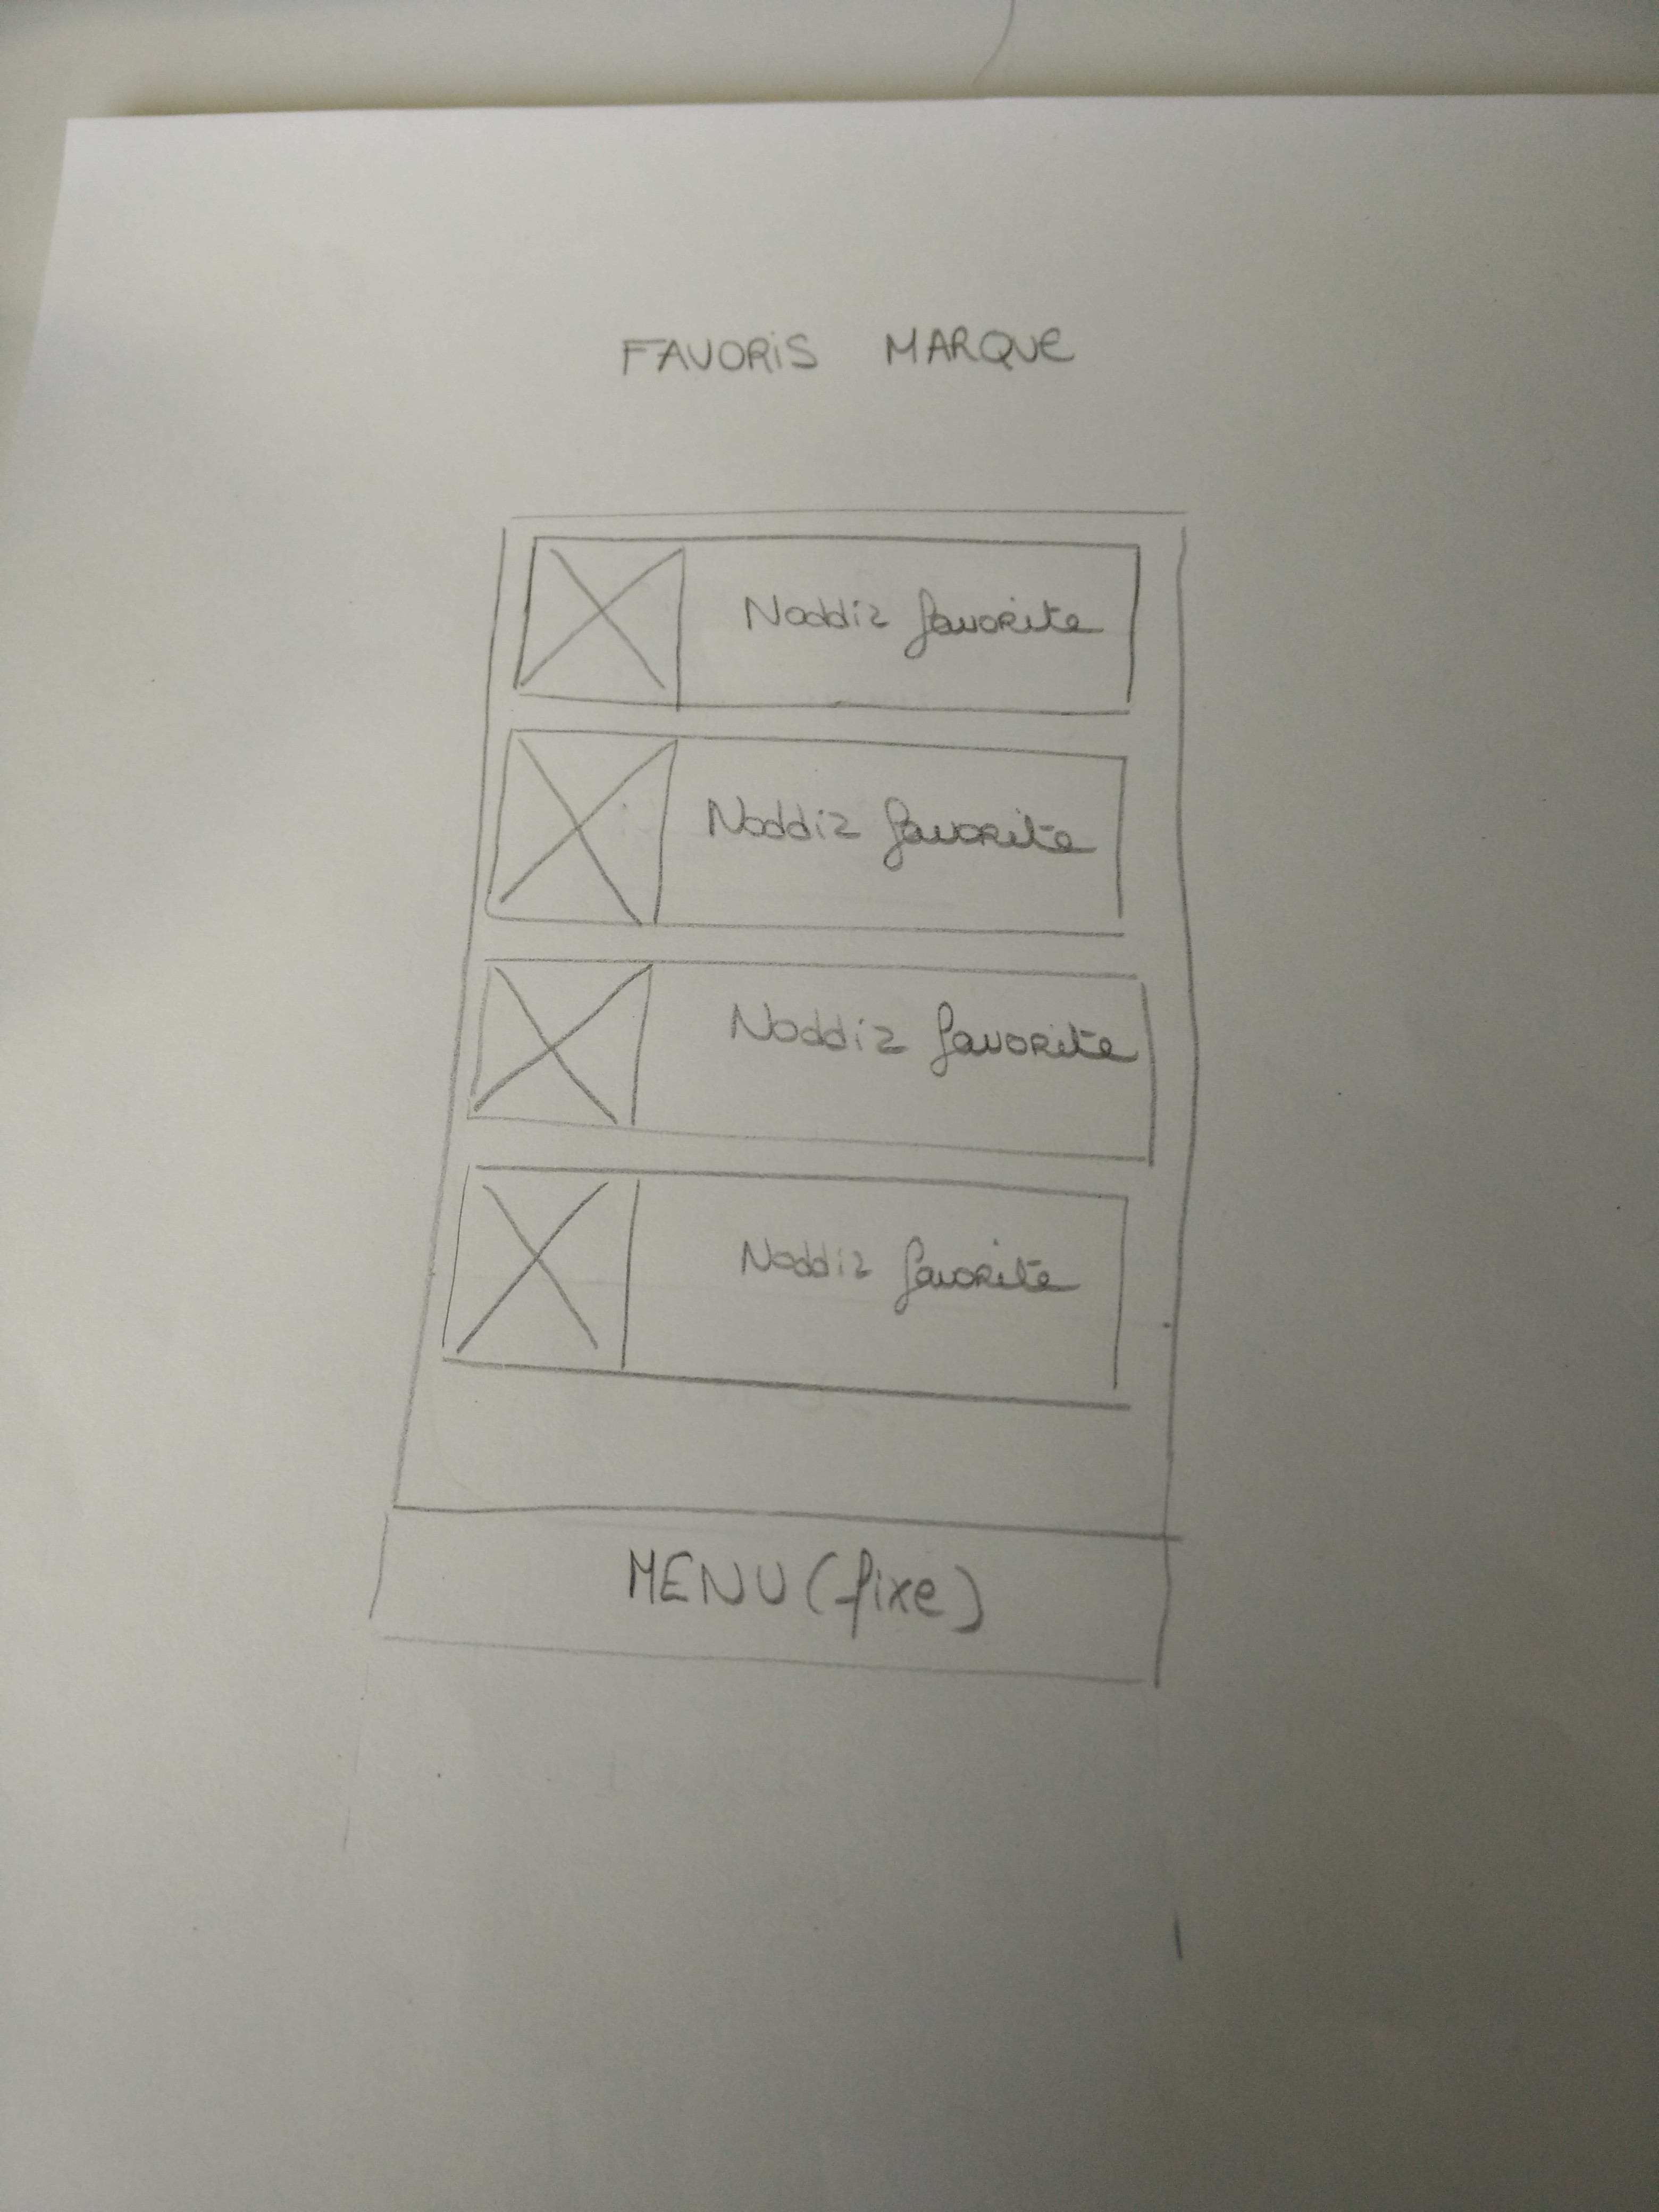 FAVORiS MARQUE
Noddiz favorite
Noddiz favorite
Noddiz favorite
Noddiz favorite
MENU (fixe)